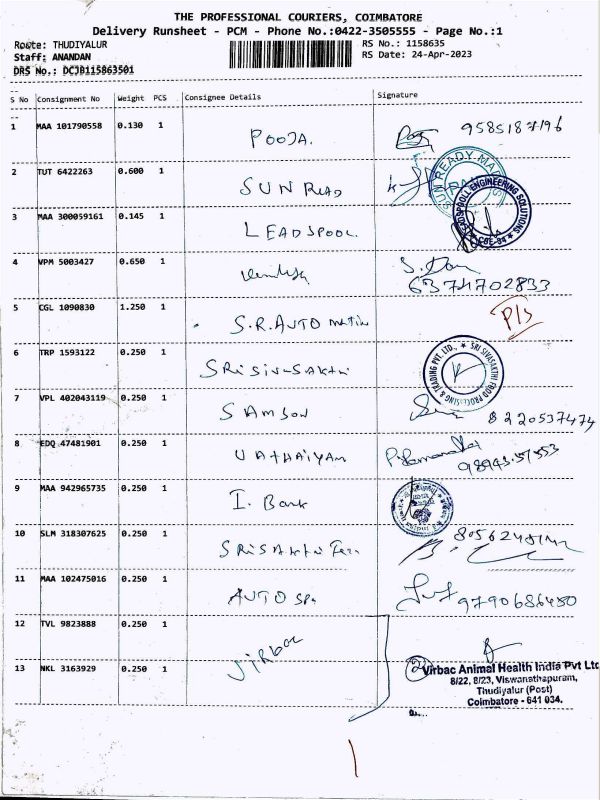 THE PROFESSIONAL COURIERS, COIMBATORE
Delivery Runsheet - PCM - Phone No.:0422-3505555 - Page No.:1
Route: THUDIYALUR
RS No.: 1158635
Staff: ANANDAN
RS Date: 24-Apr-2023
DRS No.: DCJB115863501
S No Consignment No Weight PCS Consignee Details Signature
1 MAA 101790558 0.130 1 POOJA. 9585187196
2 TUT 6422263 0.600 1 SUN READ
SUN READY
3 MAA 300059161 0.145 1 LEADSPOOL
LEADSPOOL ENGINEERING SOLUTIONS
CBE-34
4 VPM 5003427 0.650 1
6374702833
5 CGL 1090830 1.250 1 S.R.AUTO P/S
6 TRP 1593122 0.250 1 SRI SIVA SAKTHI
SRI SIVASAKTHI FOOD PROCESSING & TRADING PVT. LTD.,
7 VPL 402043119 0.250 1 SAMSON 8220537474
8 EDQ 47481901 0.250 1 VATHAIYAM
9 MAA 942965735 0.250 1 I. Bank
10 SLM 318307625 0.250 1 SRI SAKTHI
11 MAA 102475016 0.250 1 AUTO SP. 9790686480
12 TVL 9823888 0.250 1 VIRBAC
13 NKL 3163929 0.250 1
2
Virbac Animal Health India Pvt Ltd
8/22, 8/23, Viswanathapuram,
Thudiyalur (Post)
Coimbatore - 641 034.